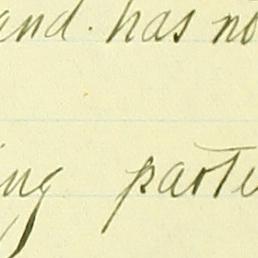 and. has no
ing parte